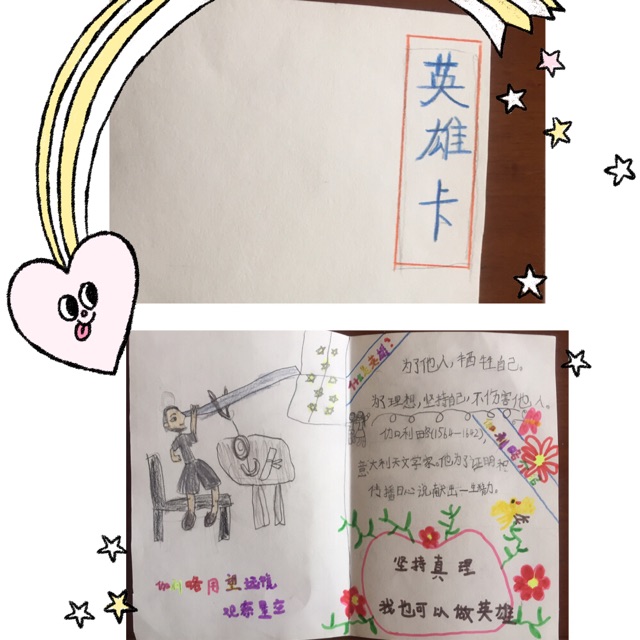 英雄卡
什么是英雄？
为了他人，牺牲自己。
为了理想，坚持自己，不伤害他人。
伽利略
伽利略(1564—1642)，
意大利天文学家。他为了证明和
传播日心说献出一生努力。
坚持真理
我也可以做英雄
伽利略用望远镜
观察星空